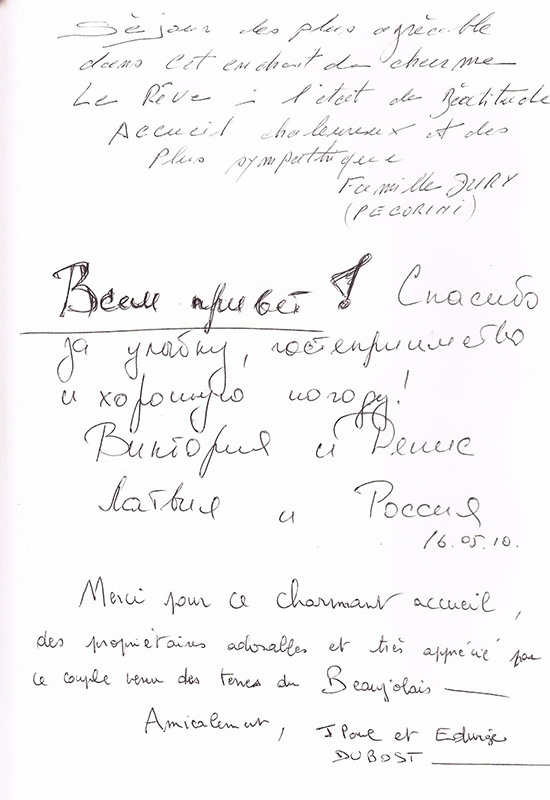 Séjour des plus agréable
dans cet endroit du charme
Le Rêve à l'état de Béatitude
Accueil chaleureux et des
plus sympathique
Famille JURY
(PECORINI)
Всем привет! Спасибо
за улыбку, гостеприимство
и хорошую погоду!
Виктория и Денис
Латвия и Россия
16.05.10.
Merci pour ce charmant accueil,
des propriétaires adorables et très apprécié par
ce couple venu des terres du Beaujolais
Amicalement, J Paul et Edwige
DUBOST